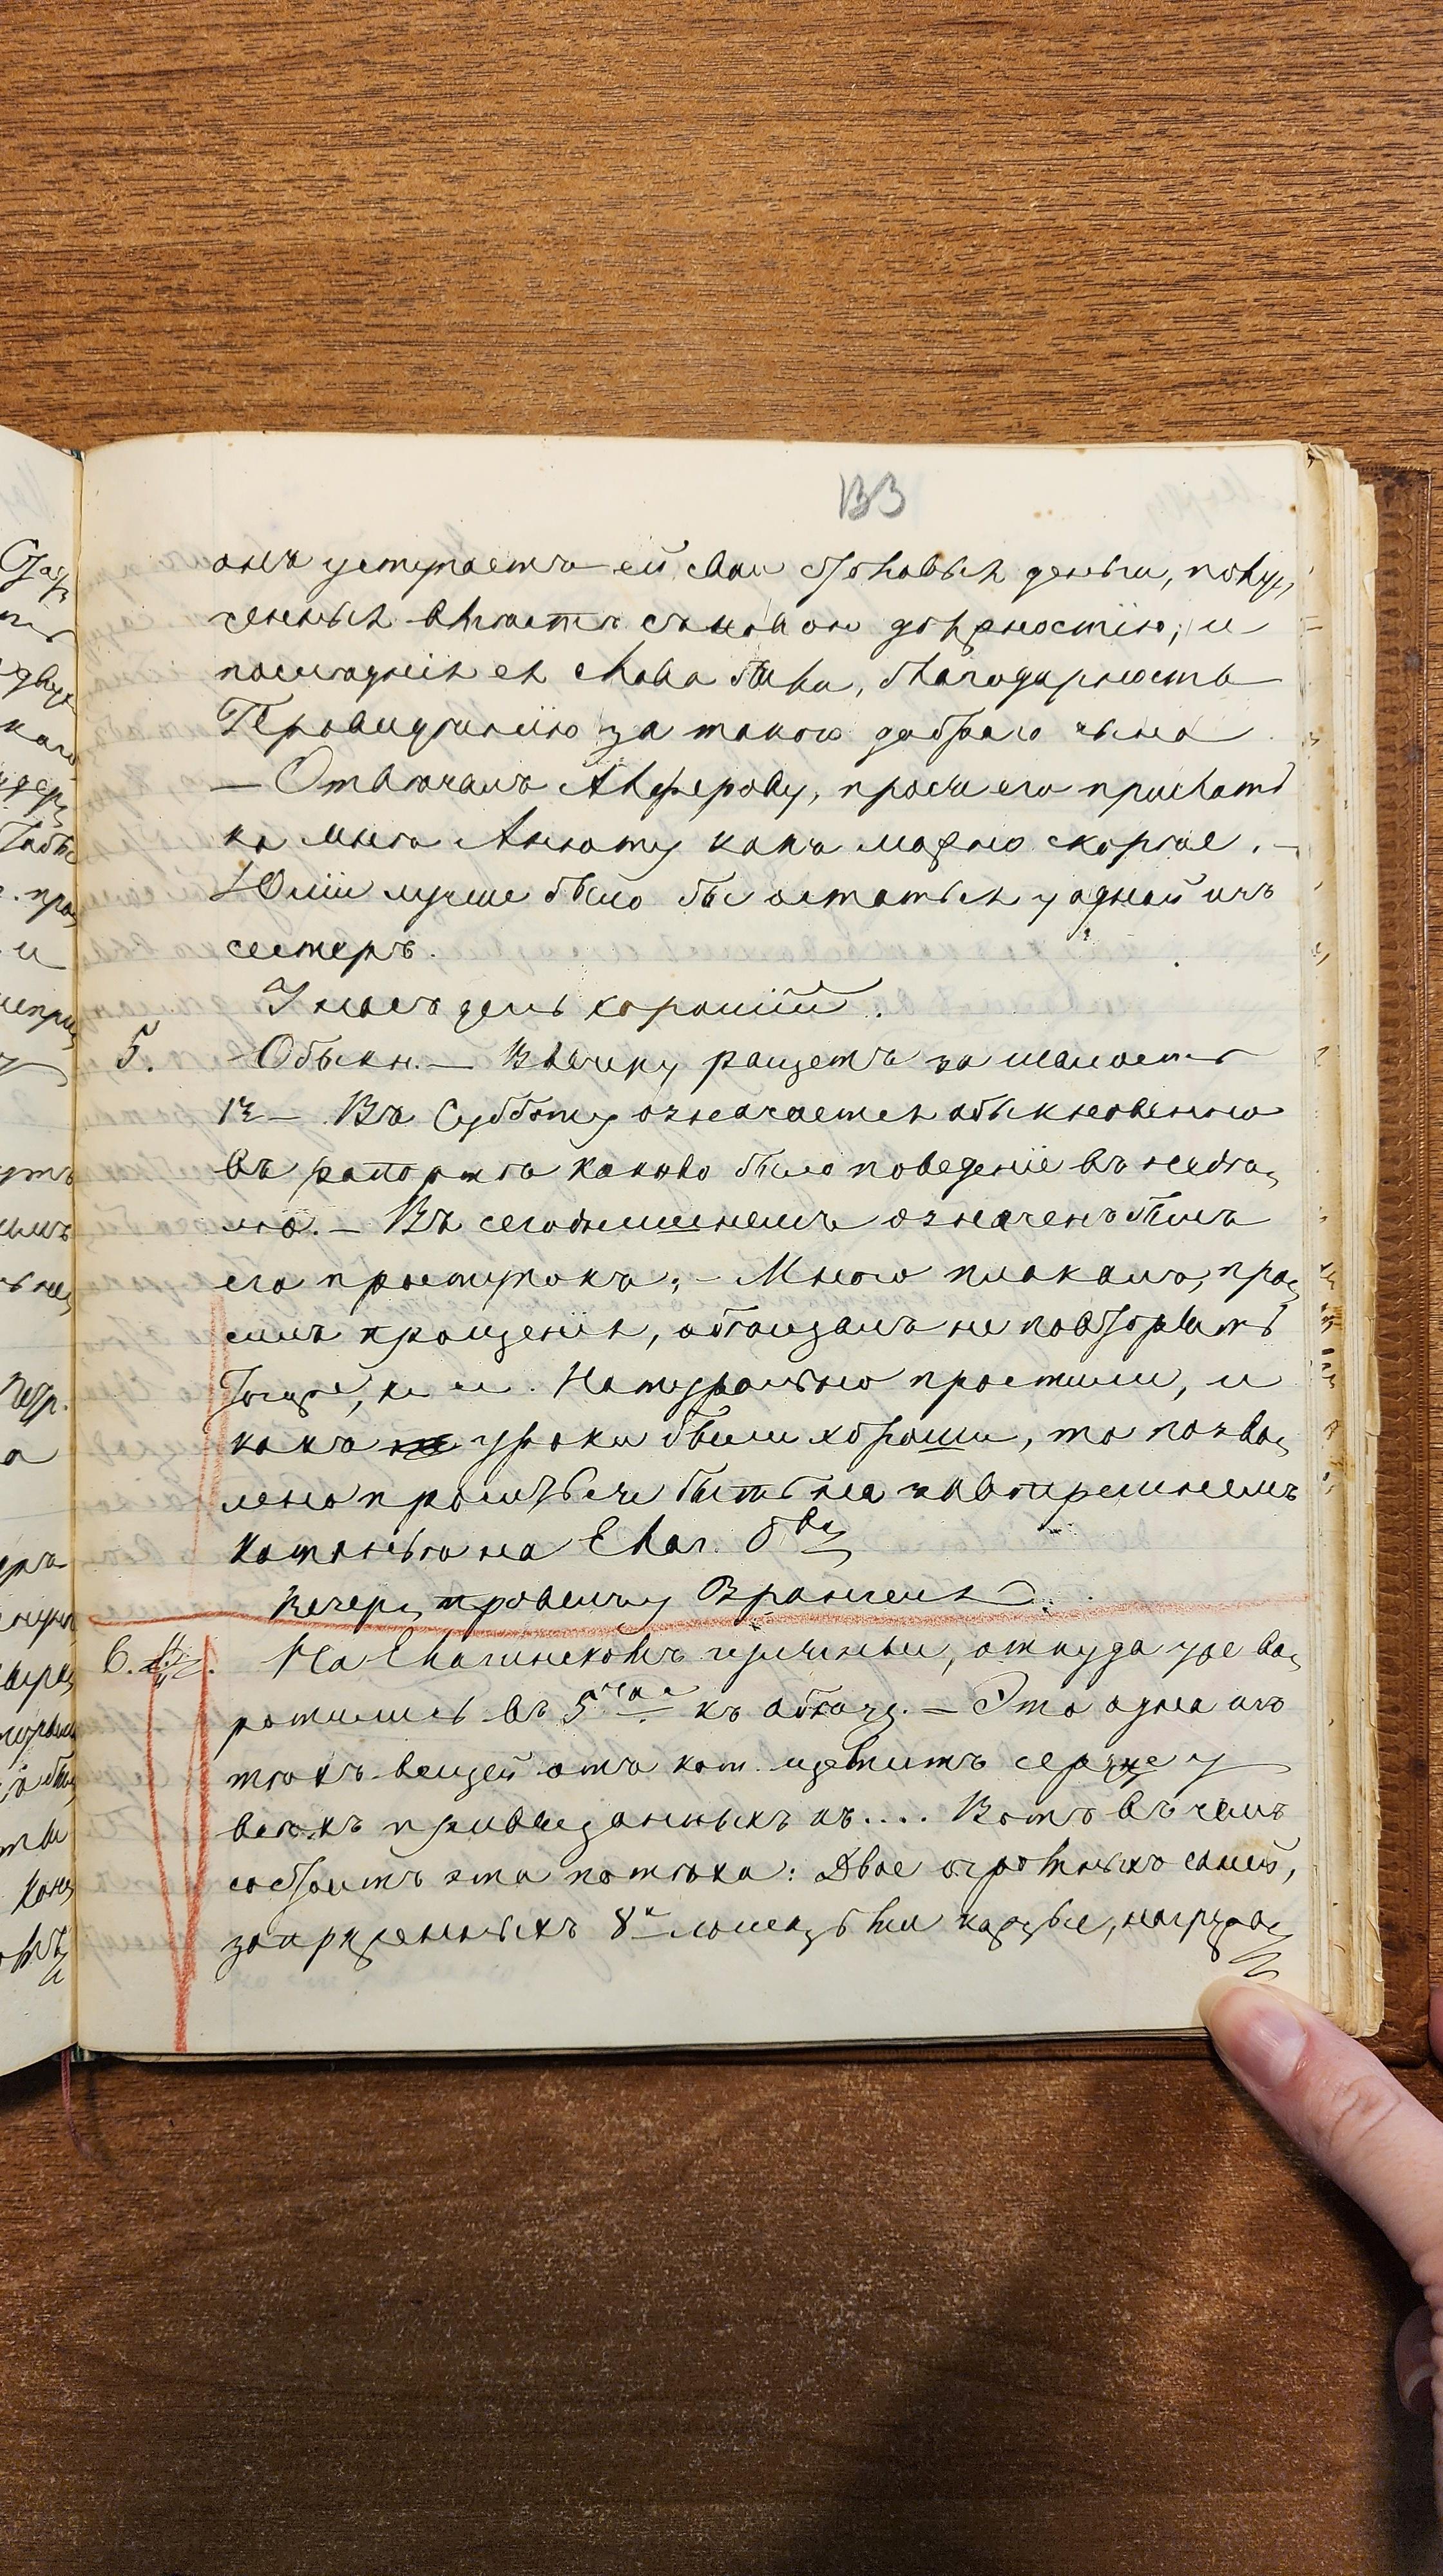 133
онъ уступаетъ ей свои столовыя деньги, полу„
ченныя вмѣстѣ съ новою должностію; и
послѣднія ея слова были, благодарность
Провидѣнію за такого добраго сына
— Отвѣчалъ Алферову, прося его прислать
ко мнѣ Аннету какъ можно скорѣе. —
Юліи лучше было бы остаться у одной изъ
сестеръ.
У насъ день хорошій.
5. Обыкн. — Ввечеру разчетъ за шалость
— Въ Субботу означается обыкновенно
въ рапортѣ каково было поведеніе въ недѣ„
лю. — Въ сегодняшнемъ означенъ былъ
его проступокъ; — Много плакалъ, про„
силъ прощенія, обѣщалъ не повторять
Натурально простили, и
какъ уроки были хороши, то позво„
лено просить быть на завтрешнемъ
катаньѣ на Елаг. о„ву
Вечеръ провелъ у Врангеля.
6. На Елагинскомъ гулянья, откуда уже во„
ротились въ 5 час къ обѣду. — Это одна изъ
тѣхъ вещей отъ кот. щемитъ сердце у
всѣхъ привязанныхъ къ.... Вотъ въ чемъ
состоитъ эта потѣха: Двое огромныхъ саней,
запряженныхъ 8ю лошадьми каждые, нагружа„